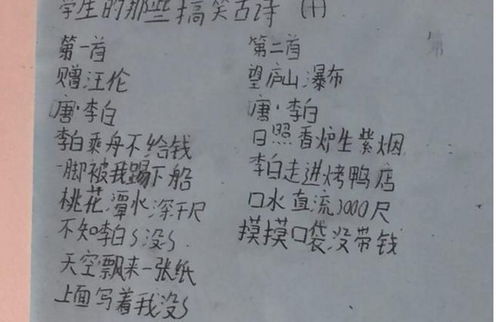 学生的那些搞笑古诗 (十)
第一首
赠汪伦
唐·李白
李白乘舟不给钱
一脚被我踢下船
桃花潭水深千尺
不知李白S没S
天空飘来一张纸
上面写着我没S
第二首
望庐山瀑布
唐·李白
日照香炉生紫烟
李白走进烤鸭店
口水直流3000尺
摸摸口袋没带钱
第